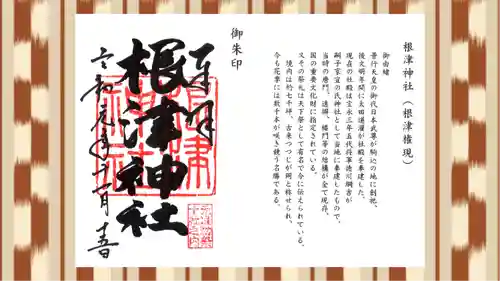 根津神社（根津権現）
御由緒
景行天皇の御代日本武尊が駒込の地に創祀、
後文明年間に太田道灌が社殿を奉建した。
現在の社殿は宝永三年五代将軍徳川綱吉が
嗣子家宣の氏神として当地に奉建したもので、
当時の唐門、透塀、楼門等の結構が全て現存、
国の重要文化財に指定されている。
又その祭礼は天下祭として有名で今に伝えられている。
境内は約七千坪、古来つつじが岡と称せられ、
今も花季には数千本が咲き競う名勝である。
御朱印
奉拝
根津神社
令和元年十一月十五日
根津神社